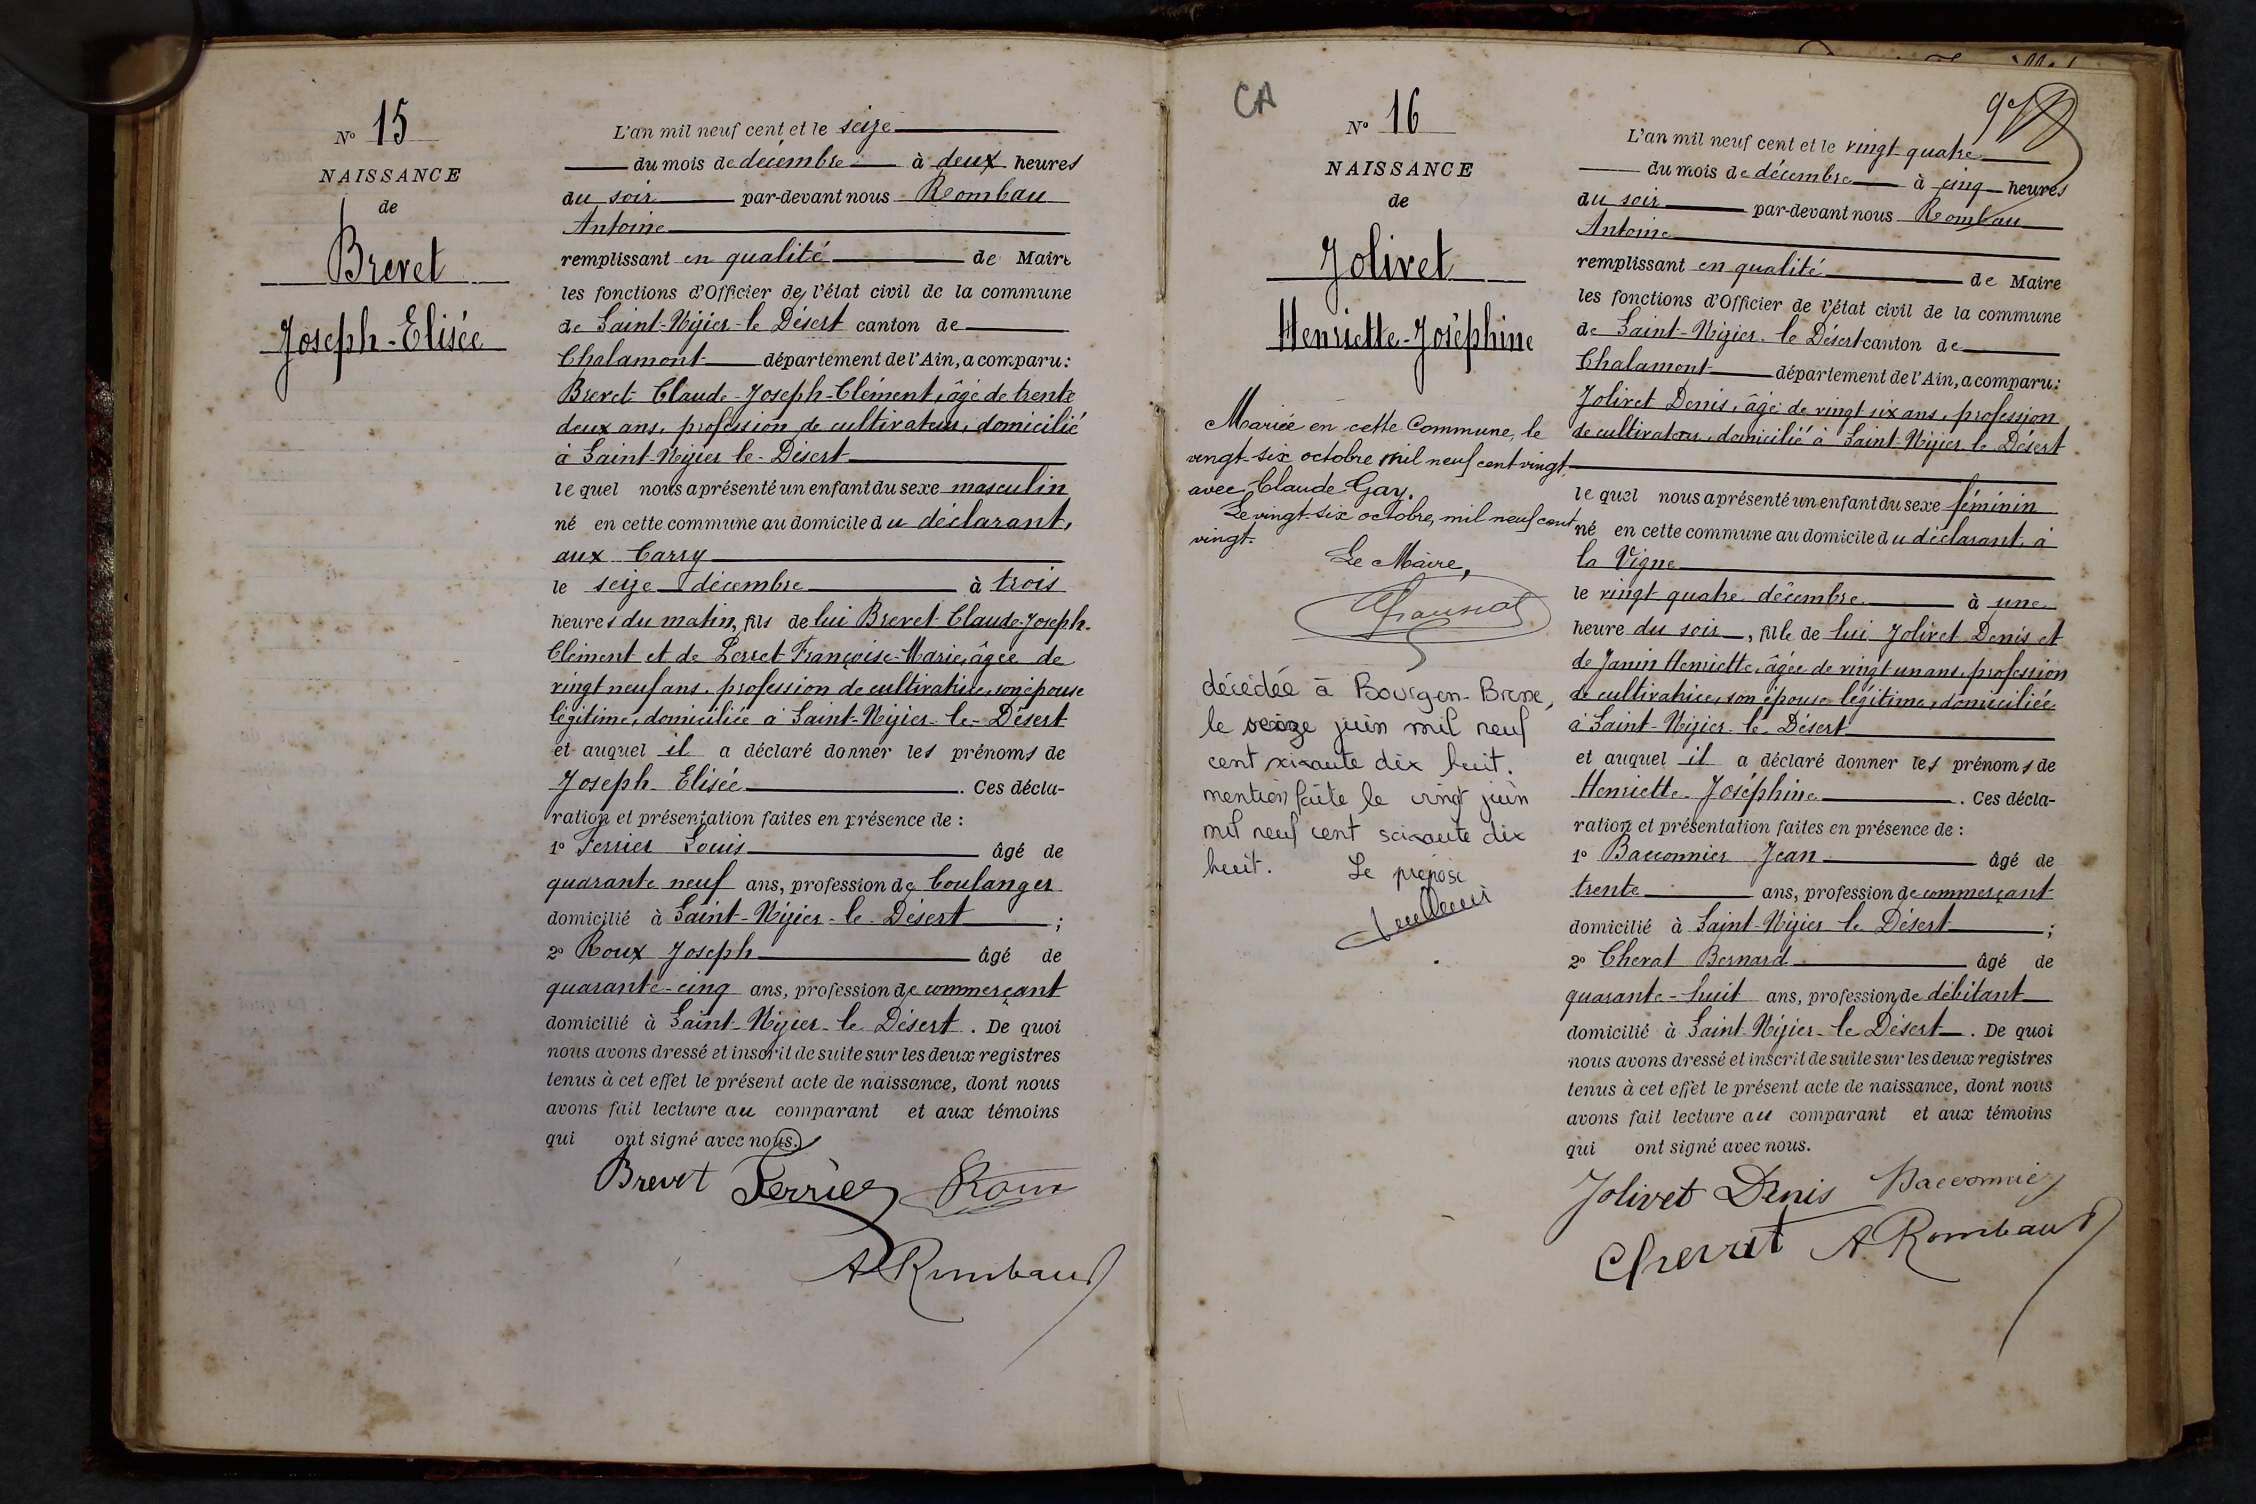 N° 15
NAISSANCE
de
Brevet
Joseph-Elisée
L'an mil neuf cent et le seize
du mois de décembre à deux heures
du soir par-devant nous Rombau
Antoine
remplissant en qualité de Maire
les fonctions d'Officier de l'état civil de la commune
de Saint-Nizier-le Désert canton de
Chalamont département de l'Ain, a comparu:
Brevet Claude-Joseph-Clément, âgé de trente
deux ans, profession de cultivateur, domicilié
à Saint-Nizier-le-Désert
le quel nous a présenté un enfant du sexe masculin
né en cette commune au domicile du déclarant,
aux Carry
le seize décembre à trois
heures du matin, fils de lui Brevet Claude-Joseph-
Clément et de Perret Françoise-Marie, âgée de
vingt neuf ans, profession de cultivatrice, son épouse
légitime, domiciliée à Saint-Nizier-le-Désert
et auquel il a déclaré donner les prénoms de
Joseph-Elisée. Ces décla-
ration et présentation faites en présence de :
1° Ferrier Louis âgé de
quarante neuf ans, profession de boulanger
domicilié à Saint-Nizier-le-Désert ;
2° Roux Joseph âgé de
quarante-cinq ans, profession de commerçant
domicilié à Saint-Nizier-le Désert. De quoi
nous avons dressé et inscrit de suite sur les deux registres
tenus à cet effet le présent acte de naissance, dont nous
avons fait lecture au comparant et aux témoins
qui ont signé avec nous.
Brevet Ferrier Roux
A Rombaud
CA
N° 16
NAISSANCE
de
Jolivet
Henriette-Joséphine
Mariée en cette Commune, le
vingt-six octobre mil neuf cent vingt
avec Claude Gay.
Le vingt-six octobre, mil neuf cent
vingt.
Le Maire,
décédée à Bourg-en-Bresse,
le seize juin mil neuf
cent soixante dix huit.
mention faite le vingt juin
mil neuf cent soixante dix
huit. Le préposé
L'an mil neuf cent et le vingt quatre
du mois de décembre à cinq heures
du soir par-devant nous Rombau
Antoine
remplissant en qualité de Maire
les fonctions d'Officier de l'état civil de la commune
de Saint-Nizier-le Désert canton de
Chalamont département de l'Ain, a comparu:
Jolivet Denis, âgé de vingt six ans, profession
de cultivateur, domicilié à Saint-Nizier-le Désert
le quel nous a présenté un enfant du sexe féminin
né en cette commune au domicile du déclarant, à
la Vigne
le vingt quatre décembre à une
heure du soir, fille de lui Jolivet Denis et
de Janin Henriette, âgée de vingt un ans, profession
de cultivatrice, son épouse légitime, domiciliée
à Saint-Nizier-le-Désert
et auquel il a déclaré donner les prénoms de
Henriette-Joséphine. Ces décla-
ration et présentation faites en présence de :
1° Bacconnier Jean âgé de
trente ans, profession de commerçant
domicilié à Saint-Nizier le Désert ;
2° Cherat Bernard âgé de
quarante-huit ans, profession de débitant
domicilié à Saint-Nizier-le Désert. De quoi
nous avons dressé et inscrit de suite sur les deux registres
tenus à cet effet le présent acte de naissance, dont nous
avons fait lecture au comparant et aux témoins
qui ont signé avec nous.
Jolivet Denis Bacconnier
Cherat A Rombaud